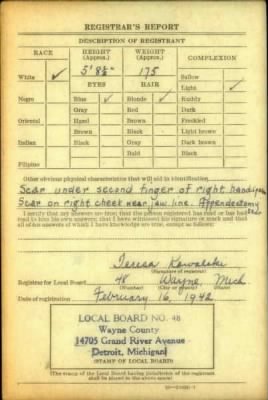 REGISTRAR'S REPORT
DESCRIPTION OF REGISTRANT
RACE HEIGHT (Approx.) WEIGHT (Approx.) COMPLEXION
5' 8½" 175
White ✓ Sallow
EYES HAIR Light ✓
Negro Blue ✓ Blonde ✓ Ruddy
Gray Red Dark
Oriental Hazel Brown Freckled
Brown Black Light brown
Indian Black Gray Dark brown
Bald Black
Filipino
Other obvious physical characteristics that will aid in identification
Scar under second finger of right hand
Scar on right cheek near jaw line. Appendectomy Scar
I certify that my answers are true; that the person registered has read or has had
read to him his own answers; that I have witnessed his signature or mark and that
all of his answers of which I have knowledge are true, except as follows:
Teresa Kowalski
(Signature of registrar)
Registrar for Local Board 48 Wayne, Mich
(Number) (City or county) (State)
Date of registration February 16, 1942
LOCAL BOARD NO. 48
Wayne County
14705 Grand River Avenue
Detroit, Michigan
(STAMP OF LOCAL BOARD)
(The stamp of the Local Board having jurisdiction of the registrant
shall be placed in the above space)